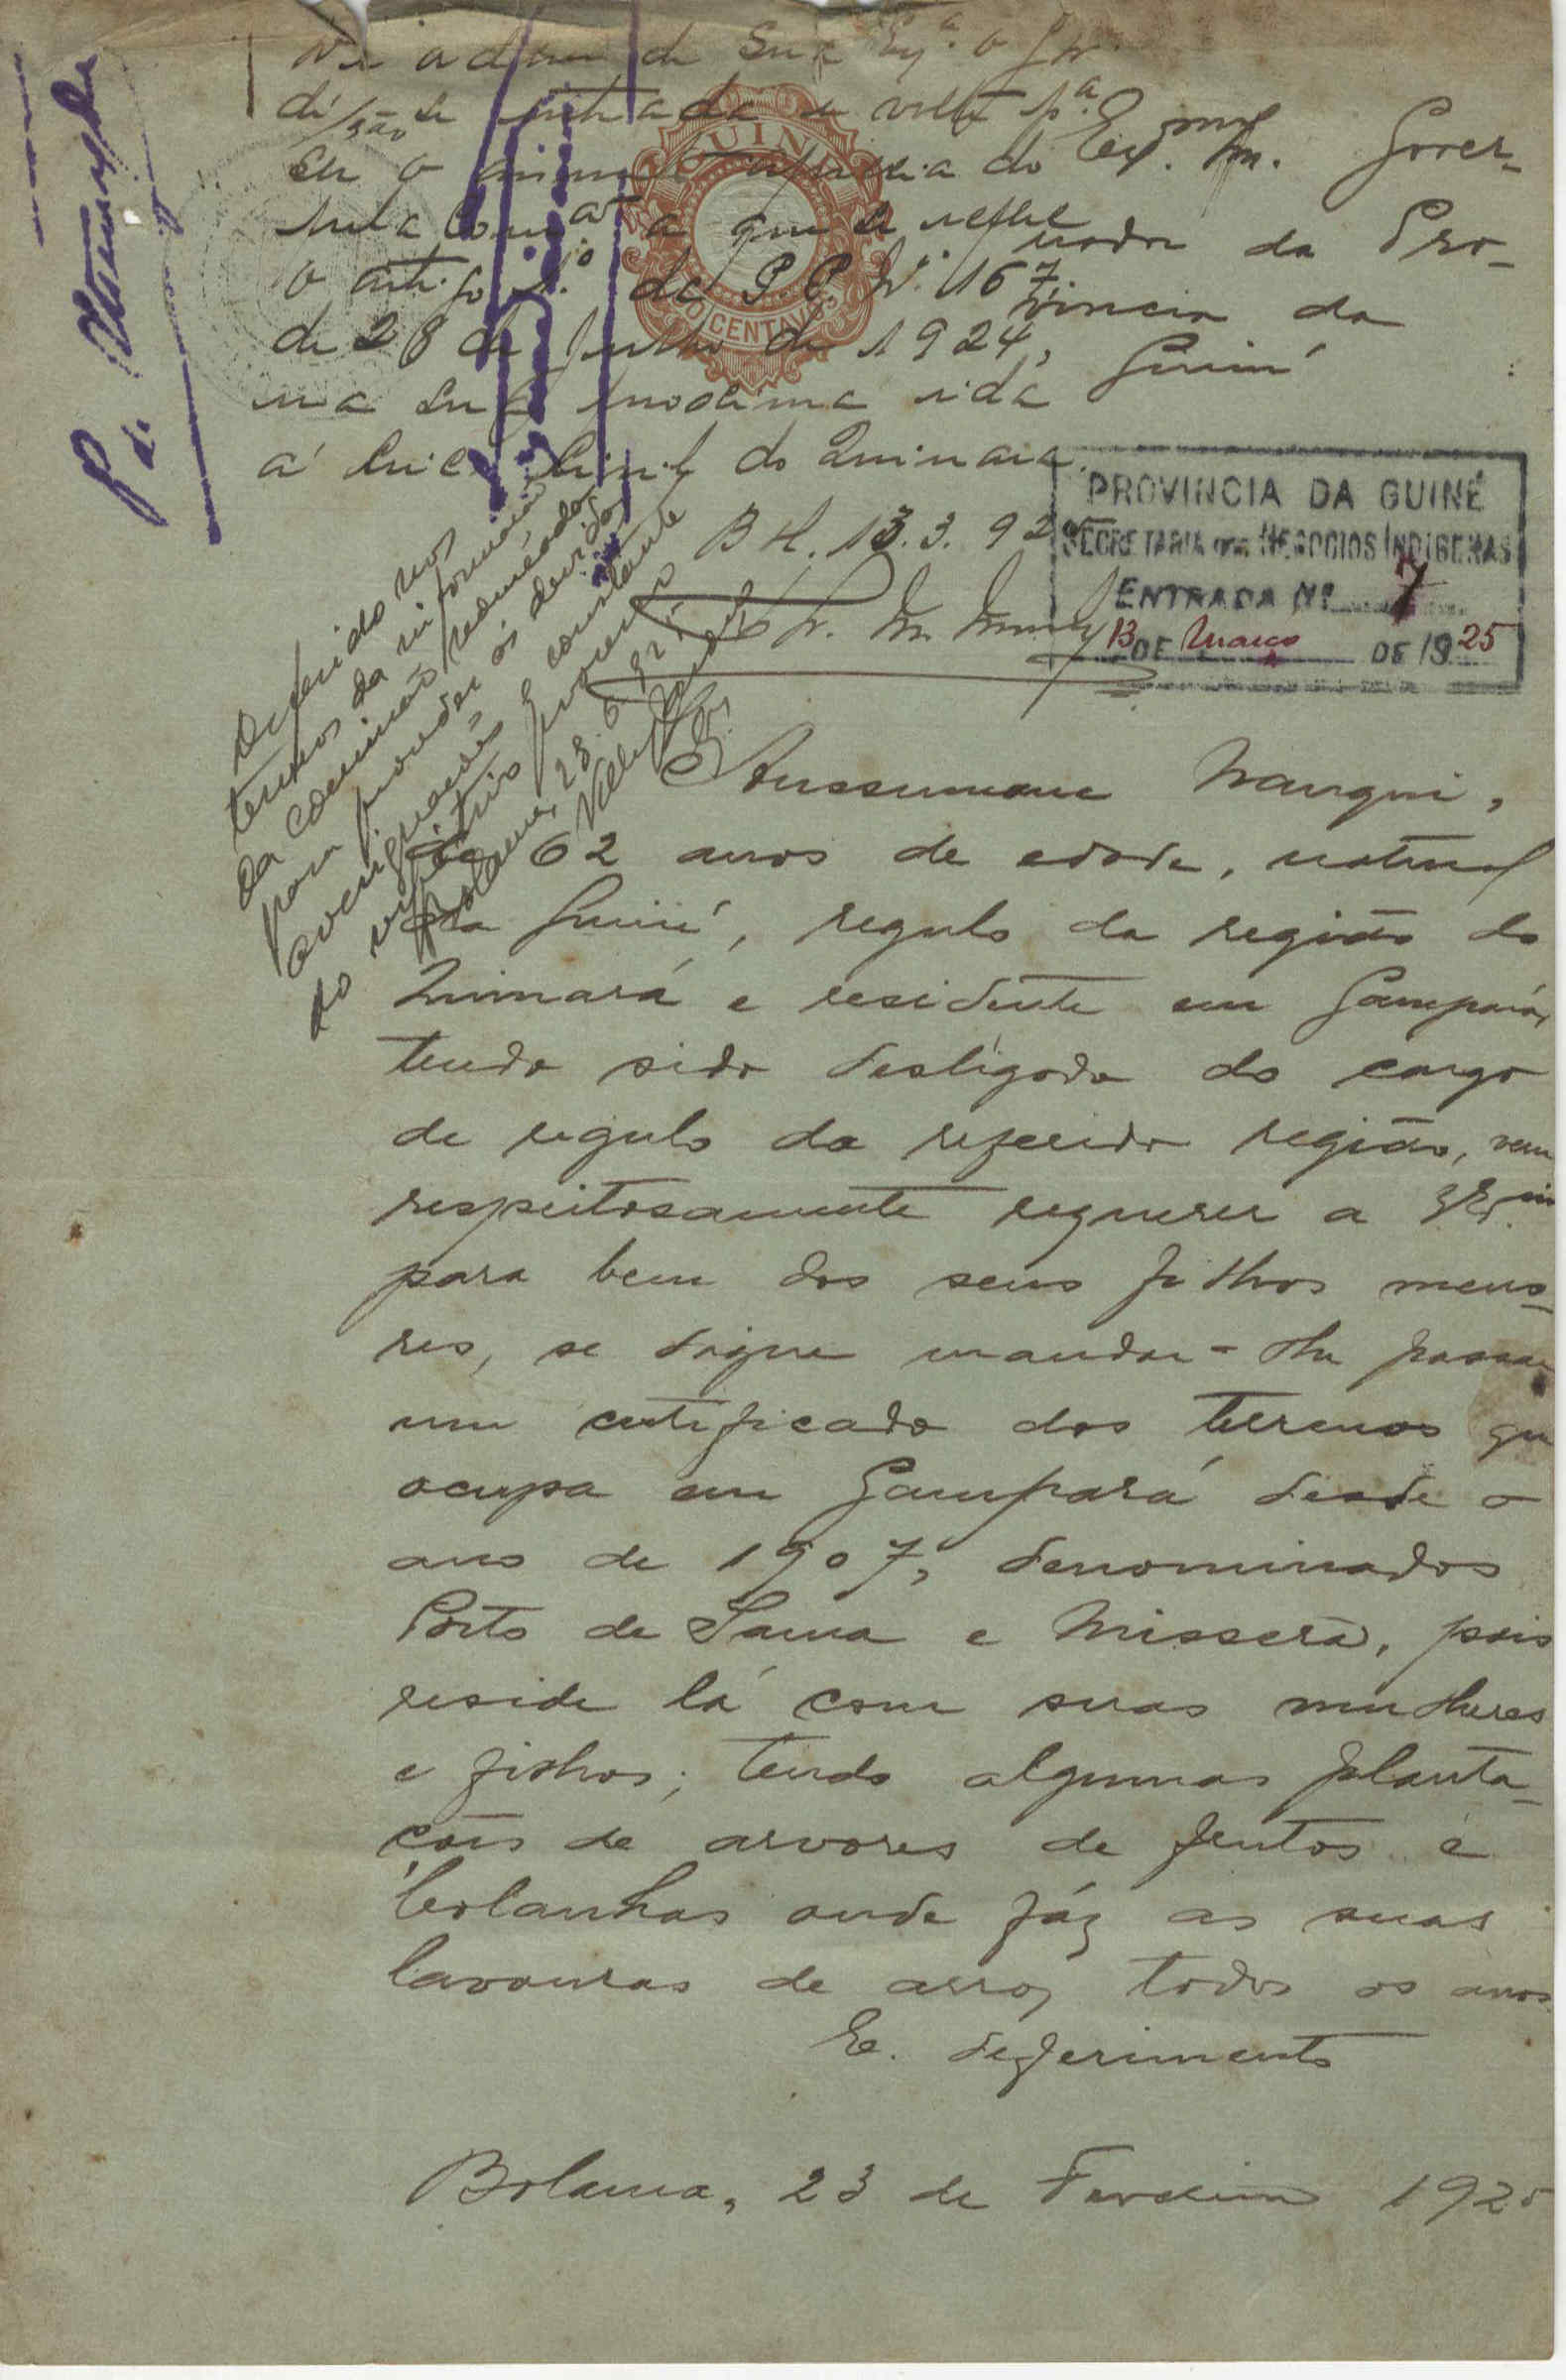 de Sua Exª. o Sr.
entrada
Exmo. Snr. Gover-
a que se refere
nador da Pro-
o artigo 1.º de P.P. Nº. 167,
vincia da
de 28 de Julho de 1924,
Guiné
na sua proxima ida
á Circ. Civil de Quinara.
GUINÉ
CENTAVOS
B H. 13.3.925
PROVINCIA DA GUINÉ
SECRETARIA DOS NEGOCIOS INDIGENAS
ENTRADA Nº 7
13 DE Março DE 1925
Deferido nos
termos da informação
da comissão nomeada
para proceder ás devidas
averiguações e constante
do respectivo processo
Bolama, 23.6.925
Aussumane Mangui,
de 62 anos de edade, natural
da Guiné, regulo da região do
Quinará e residente em Gampará,
tendo sido desligado do cargo
de regulo da referida região, vem
respeitosamente requerer a V. Ex.cia
para bem dos seus filhos meno-
res, se digne mandar-lhe passar
um certificado dos terrenos que
ocupa em Gampará desde o
ano de 1907, denominados
Porto de Sama e Misserá, pois
reside lá com suas mulheres
e filhos; tendo algumas planta-
ções de arvores de frutos e
bolanhas onde fáz as suas
lavouras de arroz todos os anos
E. defferimento
Bolama, 23 de Fevereiro 1925